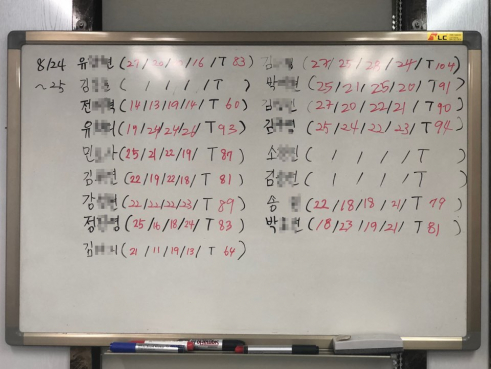 8/24 유 현 (29/20/ /16/T 83) 김 (27/25/28/24/T 104)
~25 김 ( / / / /T ) 박 (25/21/25/20/T 91)
전 혁 (14/13/19/14/T 60) 김 (27/20/22/21/T 90)
유 (19/24/24/26/T 93) 김 (25/24/22/23/T 94)
민 사 (25/21/22/19/T 87) 소 ( / / / /T )
김 (22/19/22/18/T 81) 김 ( / / / /T )
강 (22/22/22/23/T 89) 송 (22/18/18/21/T 79)
정 영 (25/16/18/24/T 83) 박 (18/23/19/21/T 81)
김 (21/11/19/13/T 64)
LC